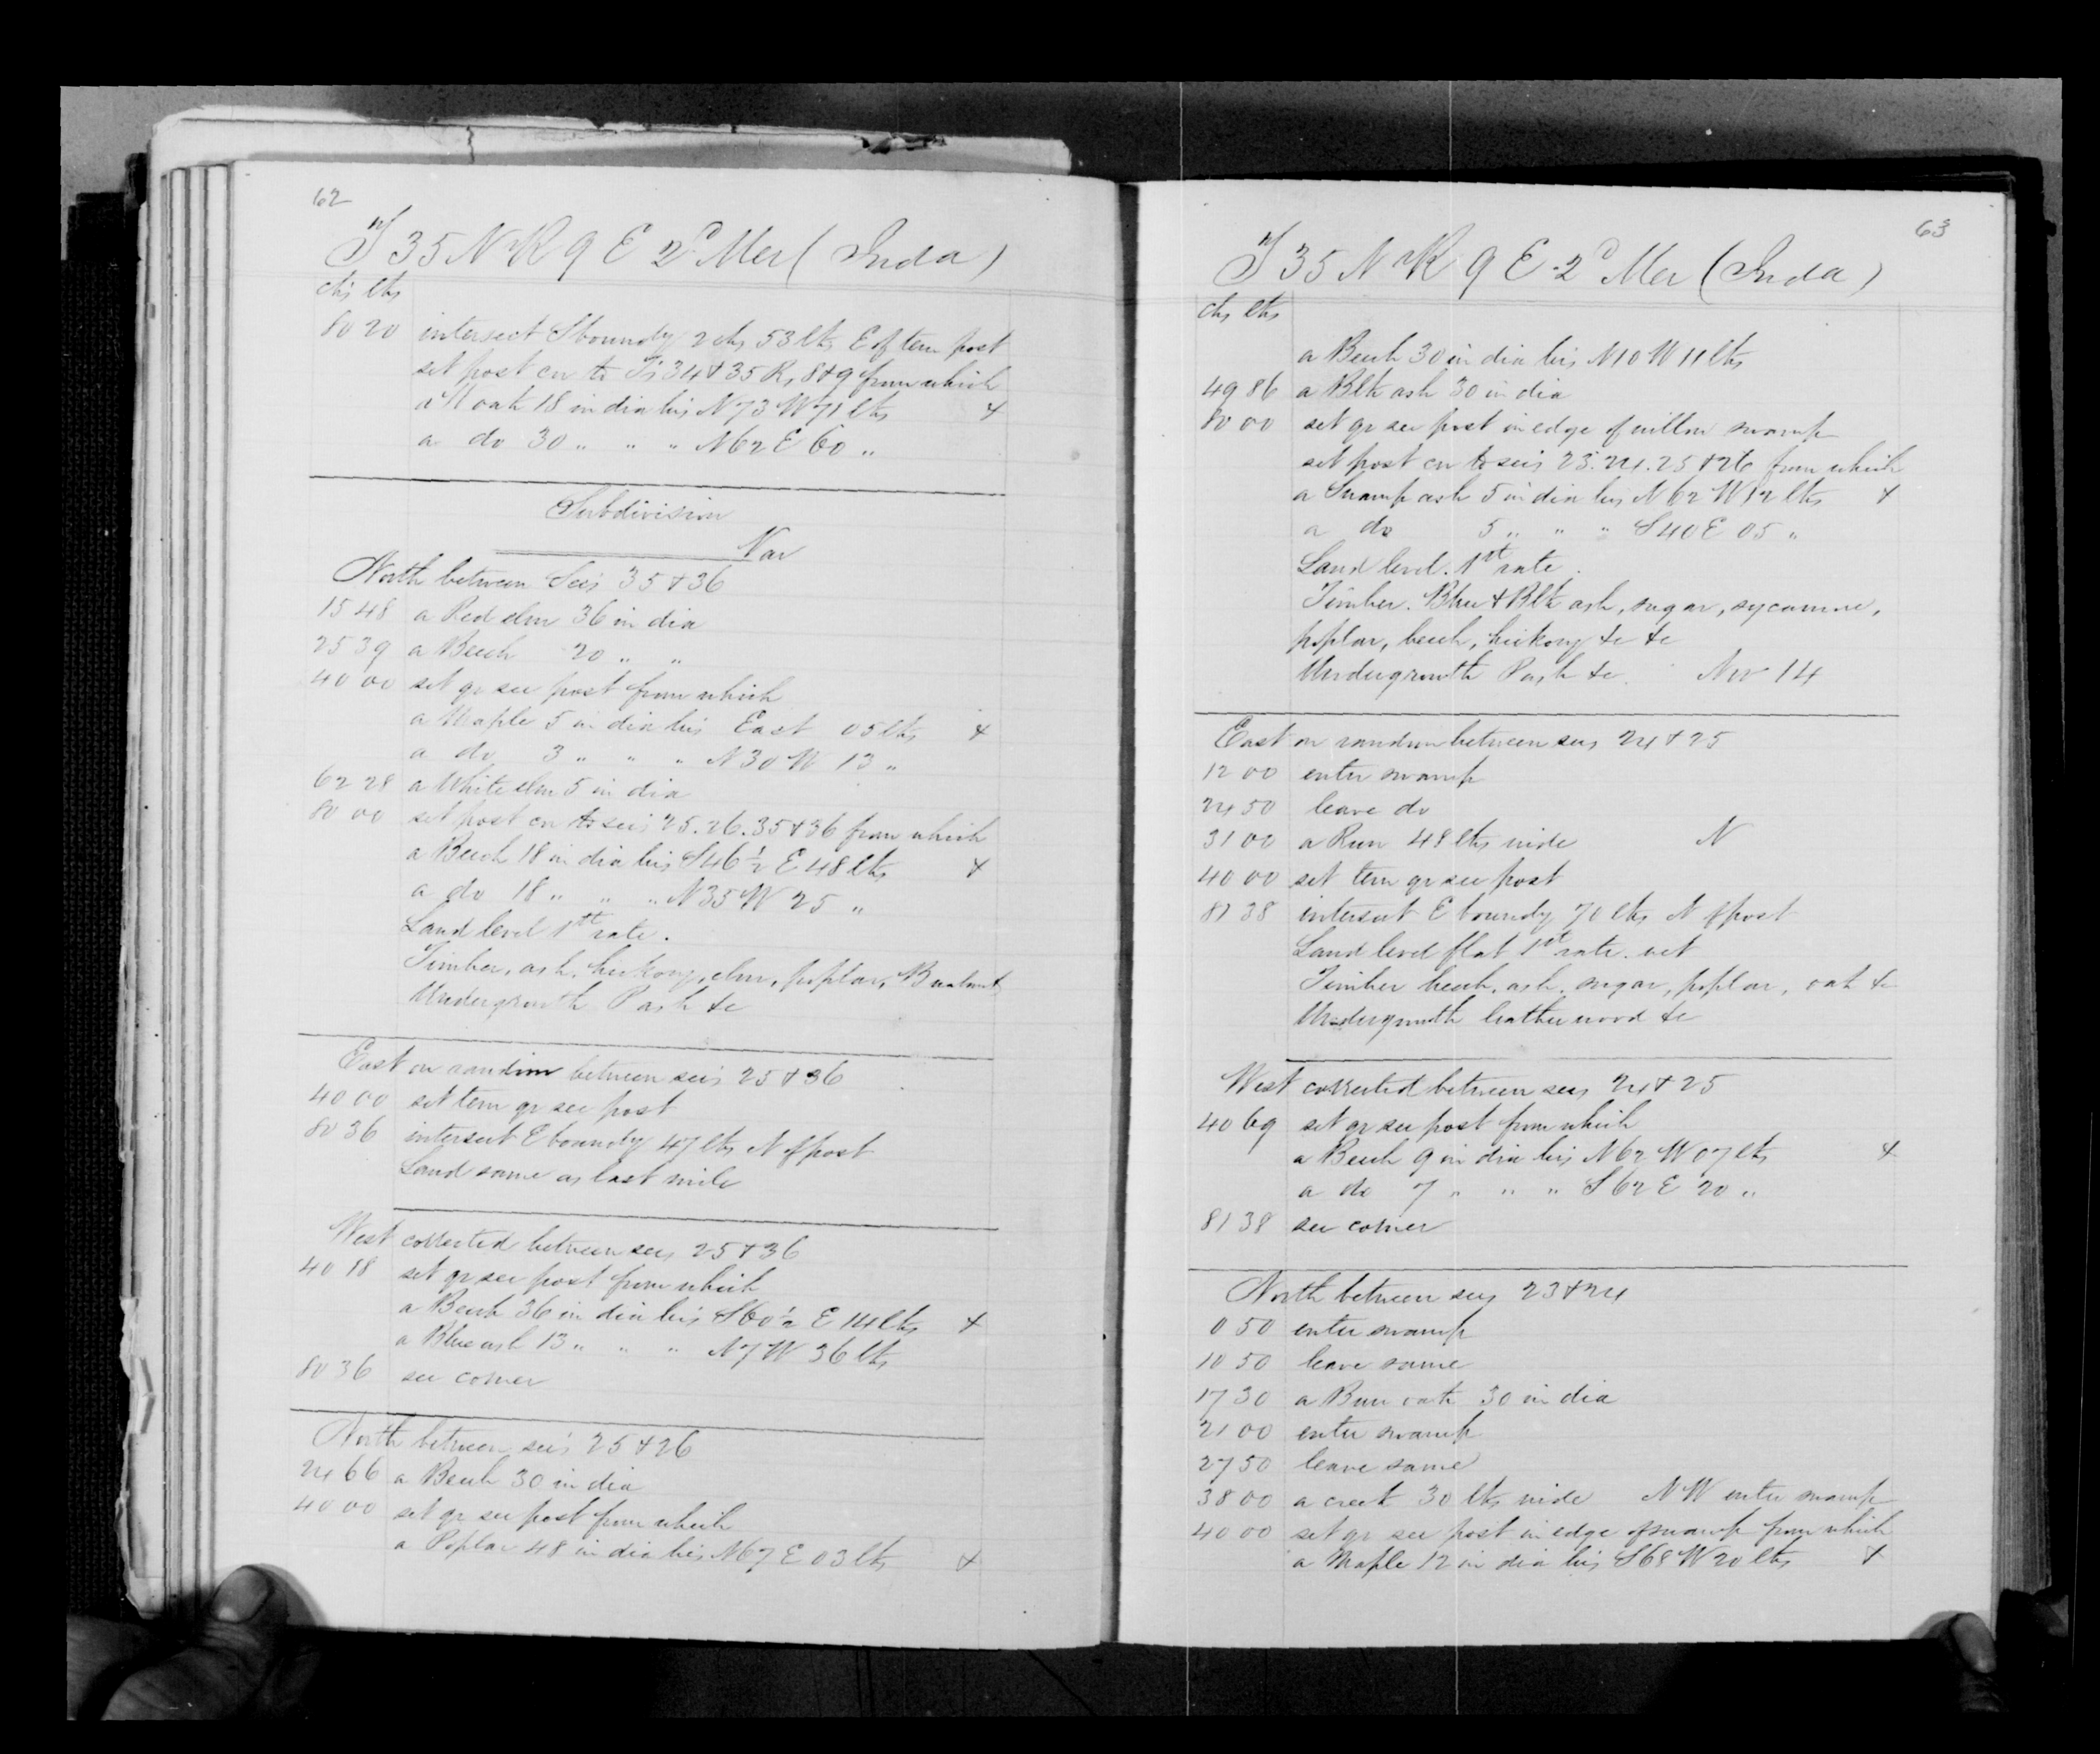 62
T 35 N R 9 E 2d Mer (Inda)
chs lks
80 20 intersect S boundy 2 chs 53 lks E of tem post
set post cor to T's 34 & 35 Rs 8 & 9 from which
a W oak 18 in dia brs N 73 W 71 lks +
a do 30 " " " N 62 E 60 "
Subdivision
Var
North between Secs 35 & 36
15 48 a Red elm 36 in dia
25 39 a Beech 20 " "
40 00 set qr sec post from which
a Maple 5 in dia brs East 05 lks +
a do 3 " " " N 30 W 13 "
62 28 a White elm 5 in dia
80 00 set post cor to secs 25. 26. 35 & 36 from which
a Beech 18 in dia brs S 46 1/2 E 48 lks +
a do 18 " " " N 35 W 25 "
Land level 1st rate.
Timber, ash, hickory, elm, poplar, B walnut
Undergrowth Pash &c
East on random between secs 25 & 36
40 00 set tem qr sec post
80 36 intersect E boundy 47 lks N of post
Land same as last mile
West corrected between secs 25 & 36
40 18 set qr sec post from which
a Beech 36 in dia brs S 60 1/2 E 14 lks +
a Blue ash 13 " " " N 7 W 36 lks
80 36 sec corner
North between secs 25 & 26
24 66 a Beech 30 in dia
40 00 set qr sec post from which
a Poplar 48 in dia brs N 67 E 03 lks +
63
T 35 N R 9 E 2d Mer (Inda)
chs lks
a Beech 30 in dia brs N 10 W 11 lks
49 86 a Blk ash 30 in dia
80 00 set qr sec post in edge of willow swamp
set post cor to secs 23. 24. 25 & 26 from which
a Swamp ash 5 in dia brs N 62 W 12 lks +
a do 5 " " " S 40 E 05 "
Land level. 1st rate.
Timber. Blue & Blk ash, sugar, sycamore,
poplar, beech, hickory &c &c
Undergrowth Pash &c. Nov 14
East on random between secs 24 & 25
12 00 enter swamp
24 50 leave do
31 00 a Run 48 lks wide N
40 00 set tem qr sec post
81 38 intersect E boundy 70 lks N of post
Land level flat 1st rate. wet
Timber beech, ash, sugar, poplar, oak &c
Undergrowth leatherwood &c
West corrected between secs 24 & 25
40 69 set qr sec post from which
a Beech 9 in dia brs N 62 W 07 lks +
a do 7 " " " S 62 E 20 "
81 38 sec corner
North between secs 23 & 24
0 50 enter swamp
10 50 leave same
17 30 a Burr oak 30 in dia
21 00 enter swamp
27 50 leave same
38 00 a creek 30 lks wide NW enter swamp
40 00 set qr sec post in edge of swamp from which
a Maple 12 in dia brs S 68 W 20 lks +